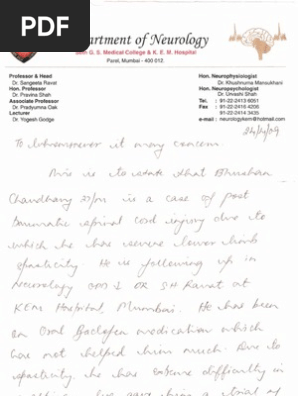 PDF
Department of Neurology
Seth G. S. Medical College & K. E. M. Hospital
Parel, Mumbai - 400 012
Professor & Head
Dr. Sangeeta Ravat
Hon. Professor
Dr. Pravina Shah
Associate Professor
Dr. Pradyumna Oak
Lecturer
Dr. Yogesh Godge
Hon. Neurophysiologist
Dr. Khushnuma Mansukhani
Hon. Neuropsychologist
Dr. Urvashi Shah
Tel. : 91-22-2413 6051
Fax : 91-22-2415 4206
91-22-2414 3435
e-mail : neurologykem@hotmail.com
To whomsoever it may concern.
This is to state that Bhushan
Chaudhary is a case of post
traumatic spinal cord injury due to
which he has severe lower limb
spasticity. He is following up in
Neurology OPD DR SH Ravat at
KEM Hospital, Mumbai. He has been
on Oral Baclofen medication which
has not helped him much. Due to
spasticity he has extreme difficulty in
gave him a trial of